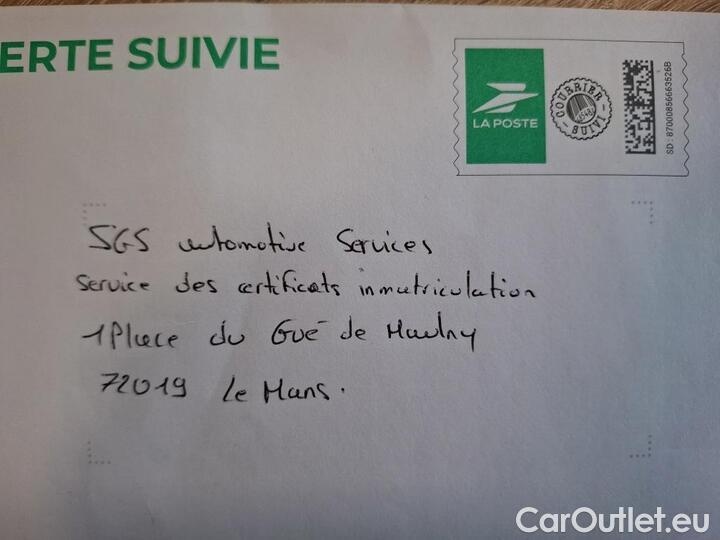 ERTE SUIVIE
LA POSTE
COURRIER SUIVI
SD: 87000856663526B
SGS automotive Services
service des certificats inmatriculation
1 Place du Gué de Maulny
72019 Le Mans.
CarOutlet.eu